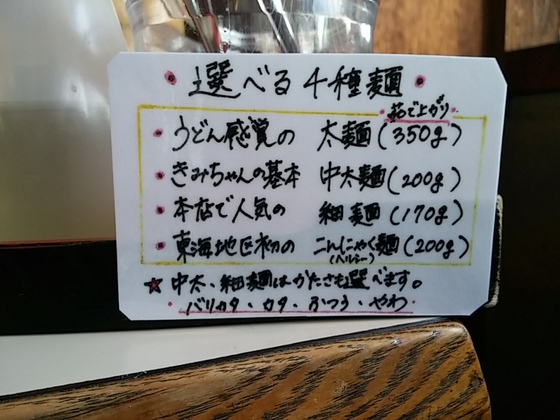 • 選べる4種麺 •
茹で上がり
• うどん感覚の 太麺(350g)
• きみちゃんの基本 中太麺(200g)
• 本店で人気の 細麺(170g)
• 東海地区初の こんにゃく麺(200g)
(ヘルシー)
☆ 中太、細麺はかたさも選べます。
・バリカタ・カタ・ふつう・やわ